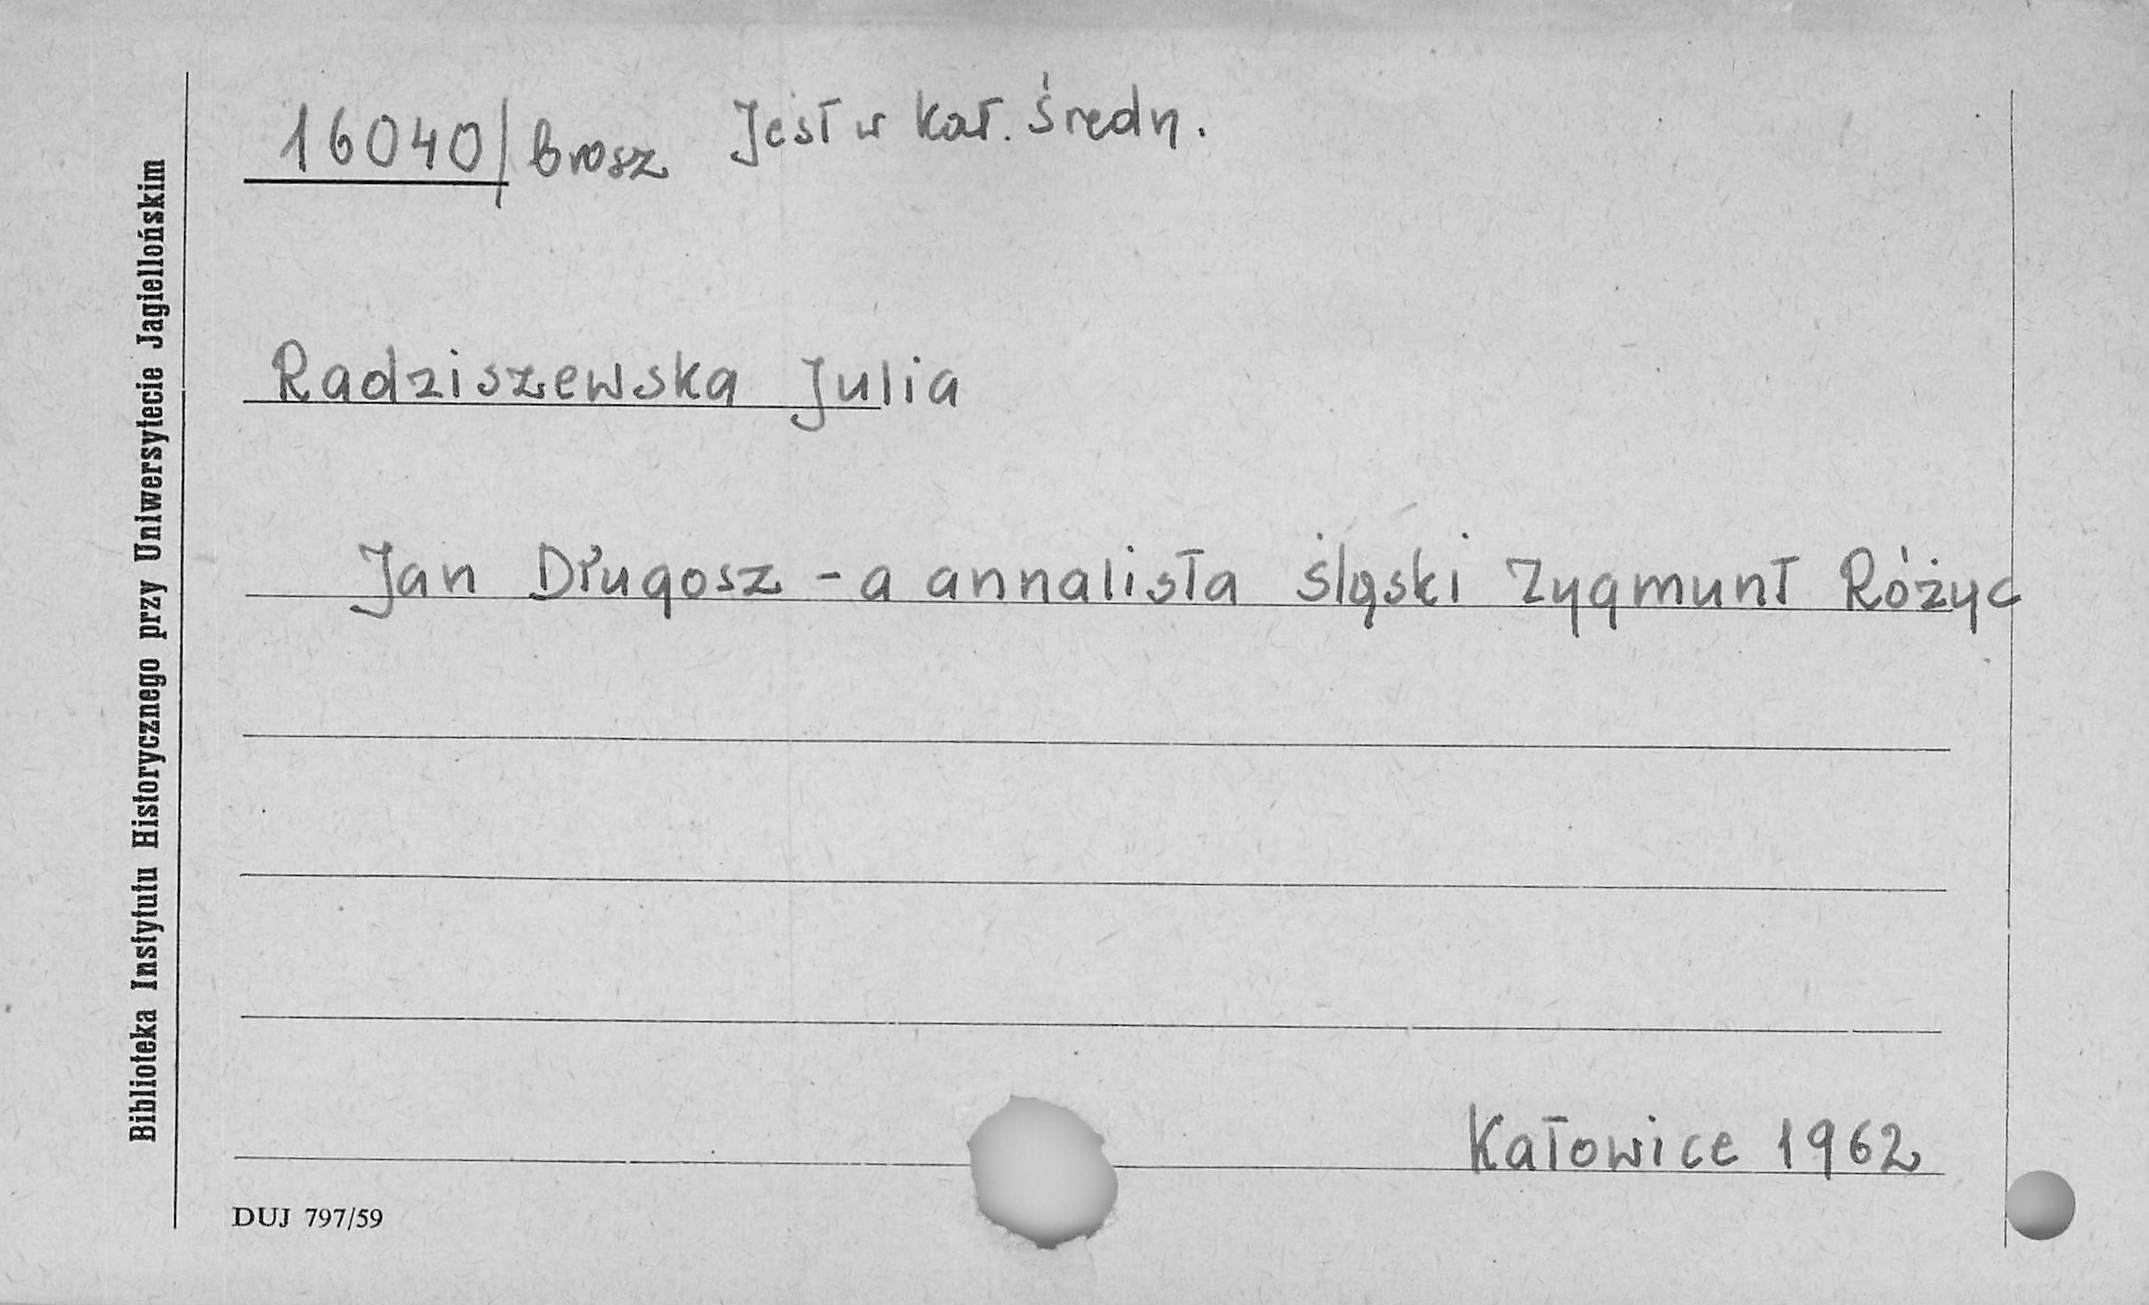 16040/brosz Jest w kat. średn.
Radziszewska Julia
Jan Długosz - a annalista śląski Zygmunt Różyc
Katowice 1962
DUJ 797/59
Biblioteka Instytutu Historycznego przy Uniwersytecie Jagiellońskim